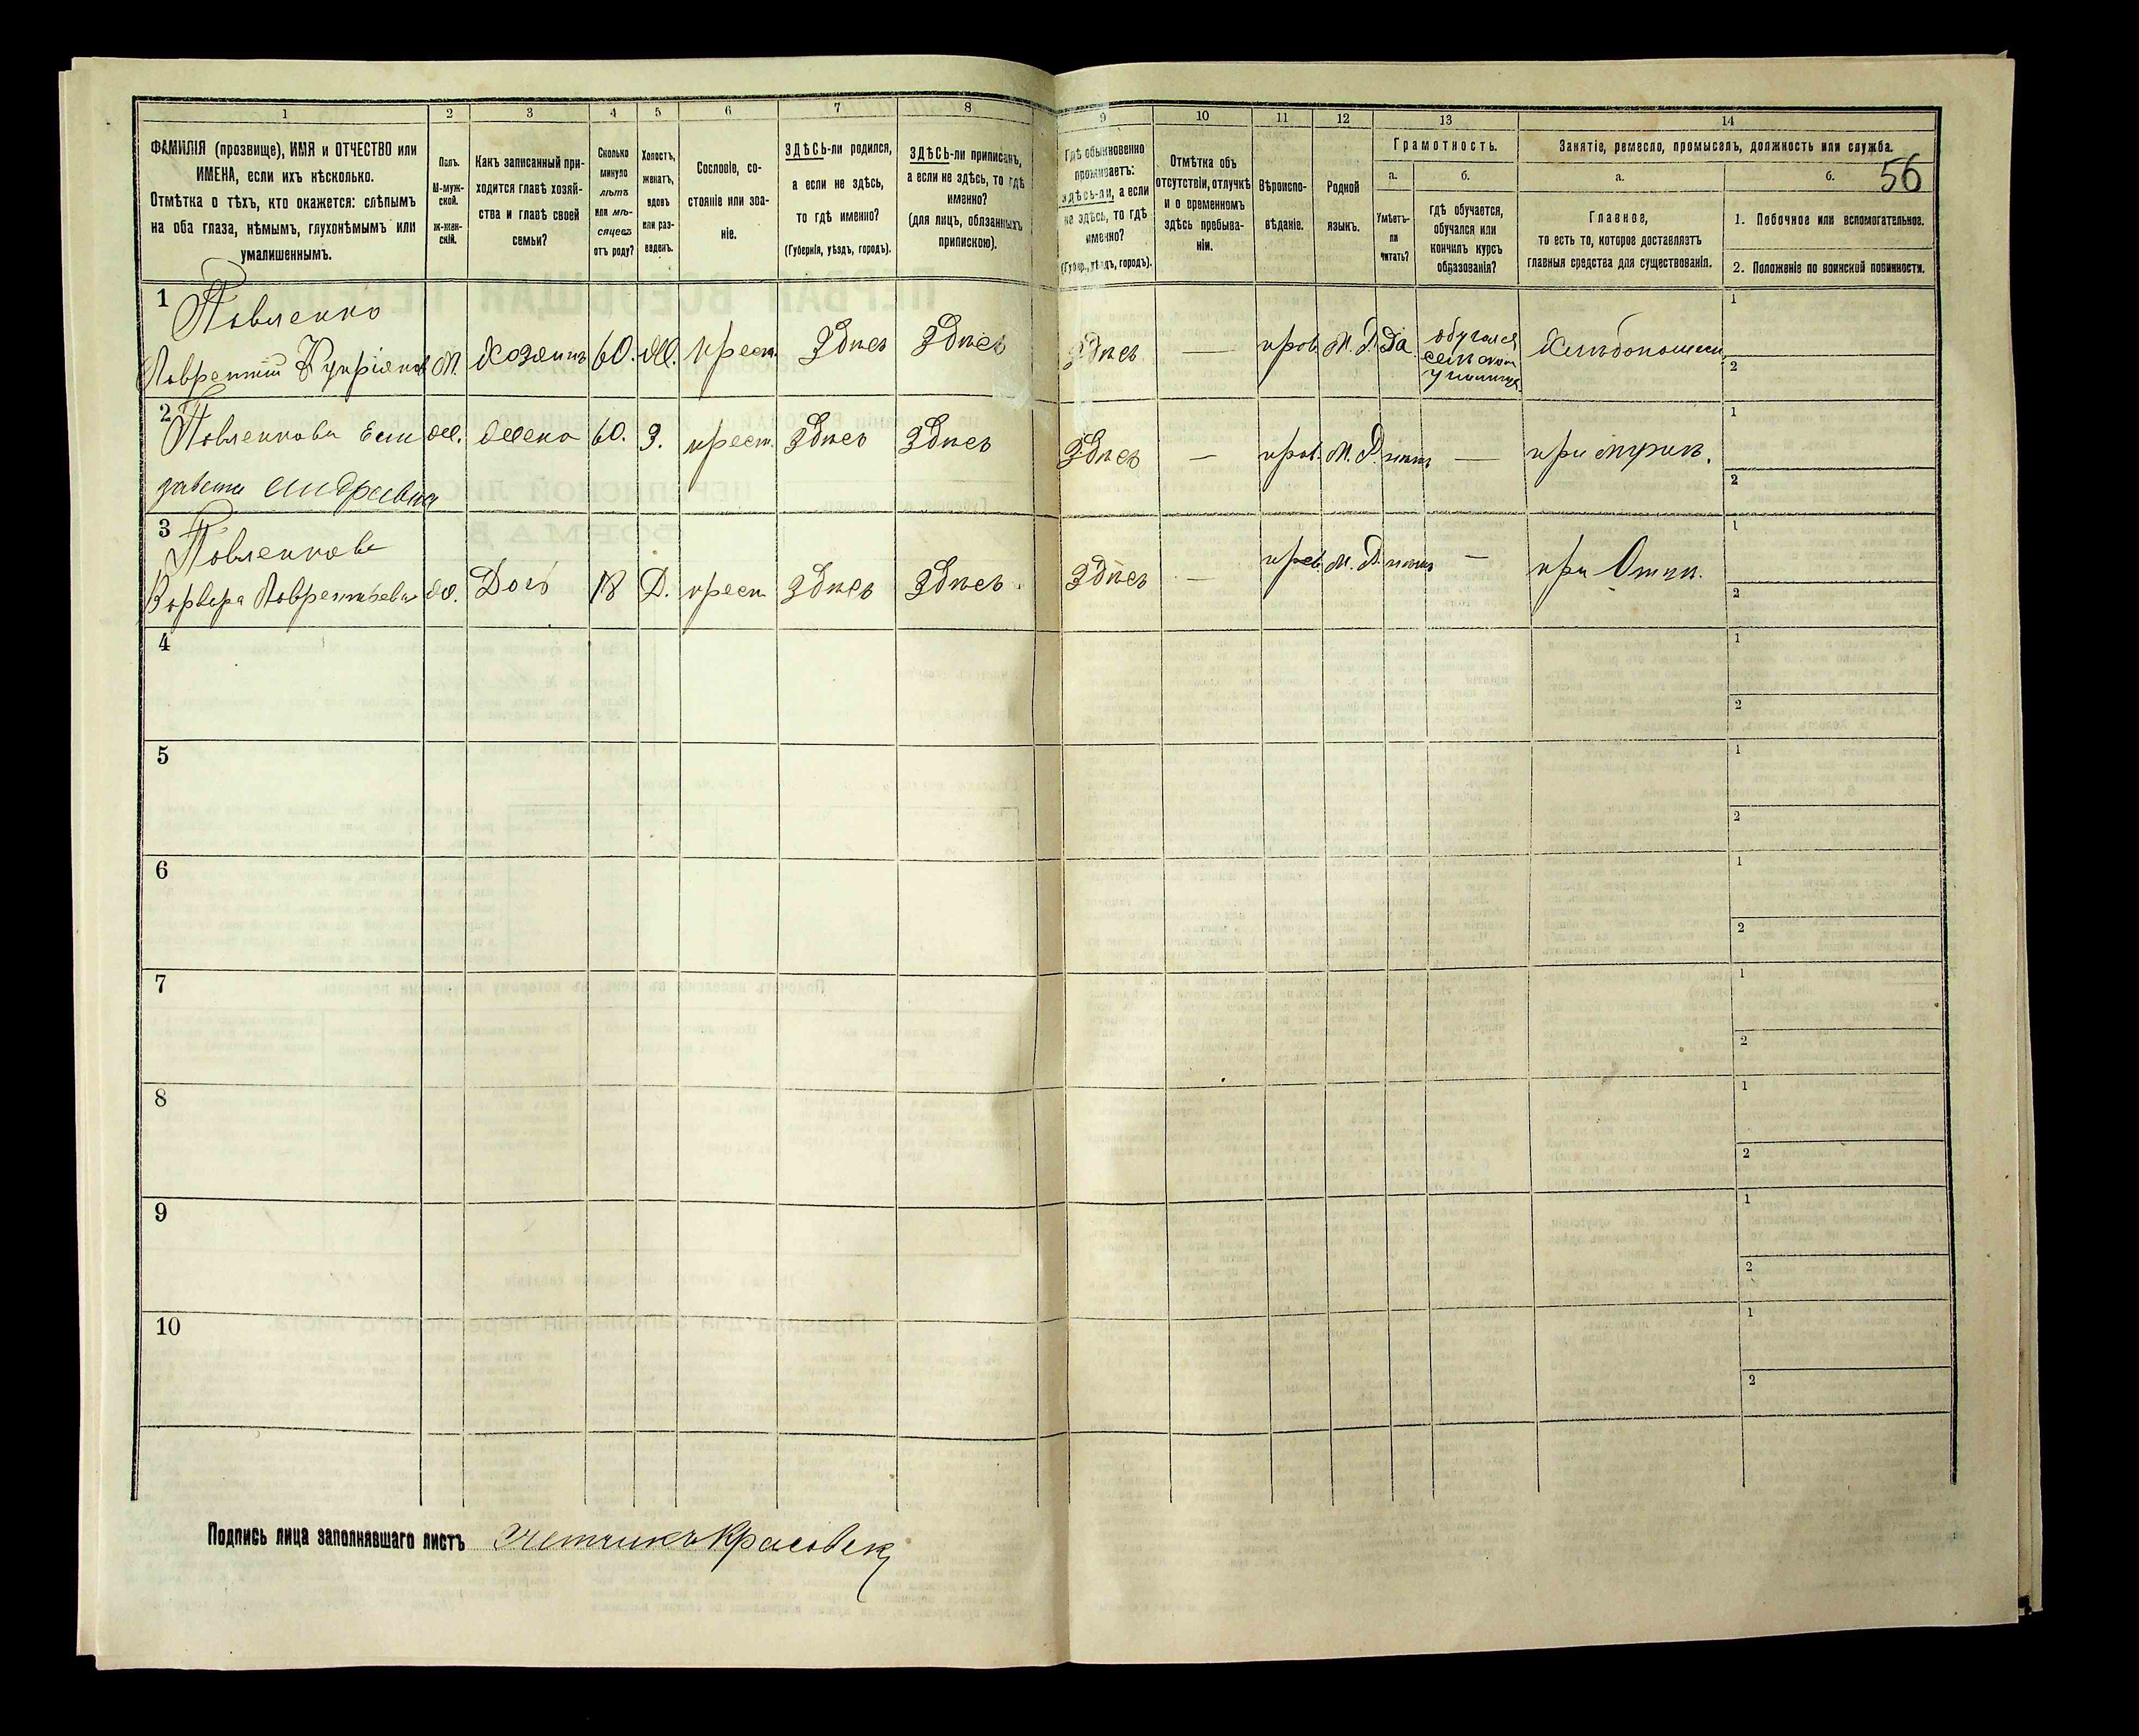 1 2 3 4 5 6 7 8
ФАМИЛІЯ (прозвище), ИМЯ и ОТЧЕСТВО или
ИМЕНА, если ихъ нѣсколько.
Отмѣтка о тѣхъ, кто окажется: слѣпымъ
на оба глаза, нѣмымъ, глухонѣмымъ или
умалишеннымъ.
Полъ.
М-муж-
ской.
Ж-жен-
скій.
Какъ записанный при-
ходится главѣ хозяй-
ства и главѣ своей
семьи?
Сколько
минуло
лѣтъ
или мѣ-
сяцевъ
отъ роду?
Холостъ,
женатъ,
вдовъ
или раз-
веденъ.
Сословіе, со-
стояніе или зва-
ніе.
ЗДѢСЬ-ли родился,
а если не здѣсь,
то гдѣ именно?
(Губернія, уѣздъ, городъ).
ЗДѢСЬ-ли приписанъ,
а если не здѣсь, то гдѣ
именно?
(для лицъ, обязанныхъ
припискою).
9 10 11 12 13 14
Гдѣ обыкновенно
проживаетъ:
здѣсь-ли, а если
не здѣсь, то гдѣ
именно?
(Губер., уѣздъ, городъ).
Отмѣтка объ
отсутствіи, отлучкѣ
и о временномъ
здѣсь пребыва-
ніи.
Вѣроиспо-
вѣданіе.
Родной
языкъ.
Грамотность.
а.
Умѣетъ-
ли
читать?
б.
гдѣ обучается,
обучался или
кончилъ курсъ
образованія?
Занятіе, ремесло, промыселъ, должность или служба.
а.
Главное,
то есть то, которое доставляетъ
главныя средства для существованія.
б.
56
1. Побочное или вспомогательное.
2. Положеніе по воинской повинности.
1
Павленко
Лаврентій М. Хозяинъ 60. Ж. крест. Здѣсь Здѣсь Здѣсь — прав. М. Р. Да
обучался
сельском
училищѣ
1
2
2
Павленкова Ели Ж. Жена 60. З. крест. Здѣсь Здѣсь Здѣсь — прав. М. Р. нѣтъ — при мужѣ.
завета Андреевна
1
2
3
Павленкова
Варвара Лаврентьева Ж. Доч 18 Д. крест Здѣсь Здѣсь Здѣсь — прав. М. Р. нѣтъ — при Отцѣ.
1
2
4
1
2
5
1
2
6
1
2
7
1
2
8
1
2
9
1
2
10
1
2
Подпись лица заполнявшаго листъ Счетчикъ